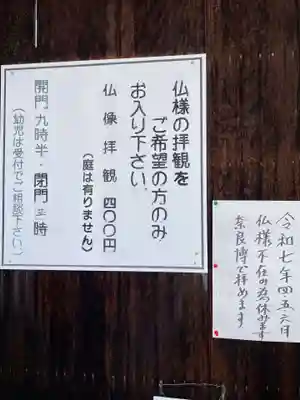 仏様の拝観を
ご希望の方のみ
お入り下さい.
仏像拝観 四〇〇円
(庭は有りません)
開門 九時半・閉門 三時
(幼児は受付でご相談下さい)
令和七年四・五・六月
仏様不在の為休みます
奈良博で拝めます